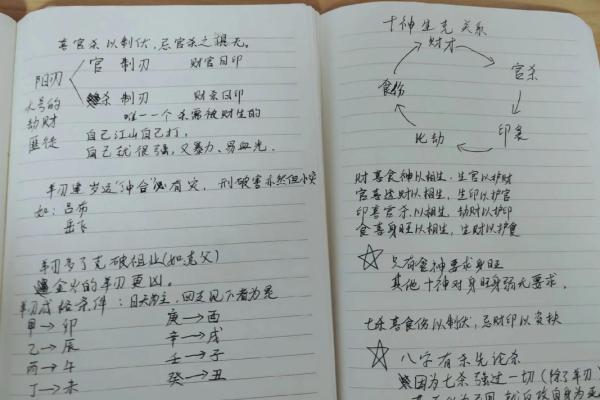 喜官杀以制伏,忌官杀之祸无。
阳刃
官 制刃 财官日印
杀 制刃 财杀日印
大号的
劫财
匪徒
唯一一个杀需被财生的
自己江山自己打,
自己就很强,又暴力、易血光.
羊刃逢岁运"冲合"必有灾, 刑破害亦然但小灾
如:吕布
岳飞
羊刃多了克破祖业(如克父)
金火的羊刃更凶。
羊刃成格条件:日天为主,四支见下者为是
甲→卯
乙→辰
丙→午
丁→未
庚→酉
辛→戌
壬→子
癸→丑
十神生克关系
财才
官杀
印枭
比劫
食伤
财喜食神以相生,生官以护财
官喜透财以相生,生印以护官
印喜官杀以相生,劫财以护印
食喜身旺以相生,生财以护食
只有食神要求身旺
其他十神对身旺身弱无要求.
七杀喜食伤以制伏,忌财印以资扶
八字有杀先论杀
因为七杀强过一切(除了羊刃)